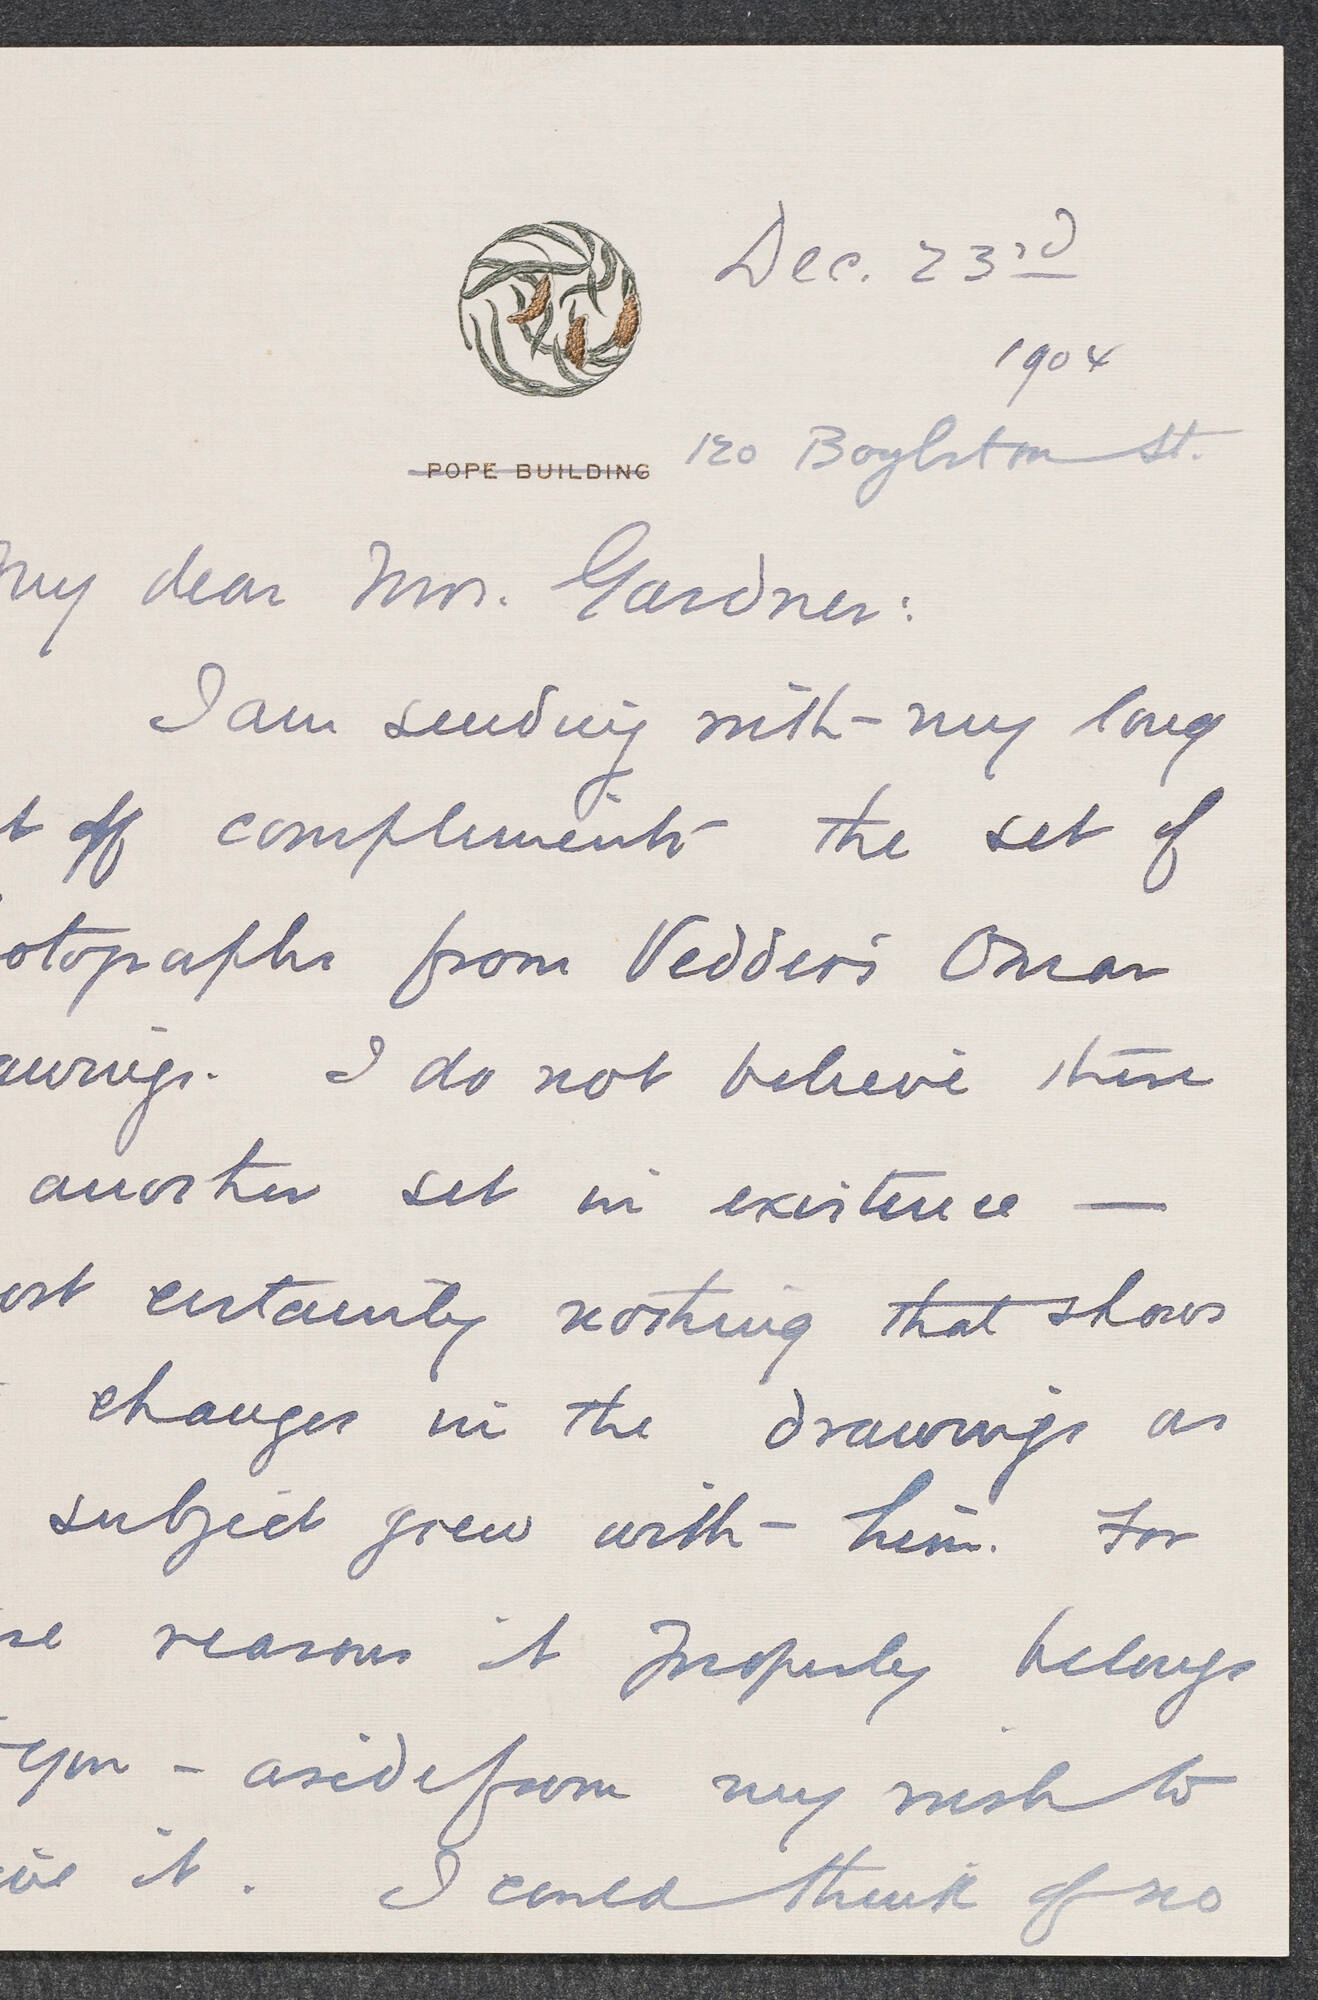 Dec. 23rd
1904
120 Boylston St.
POPE BUILDING
My dear Mrs. Gardner:
I am sending with my long
t off compliments the set of
otographs from Vedder's Omar
awings. I do not believe there
another set in existence —
ost certainly nothing that shows
changes in the drawings as
subject grew with him. For
se reasons it properly belongs
you - aside from my wish to
ive it. I could think of no